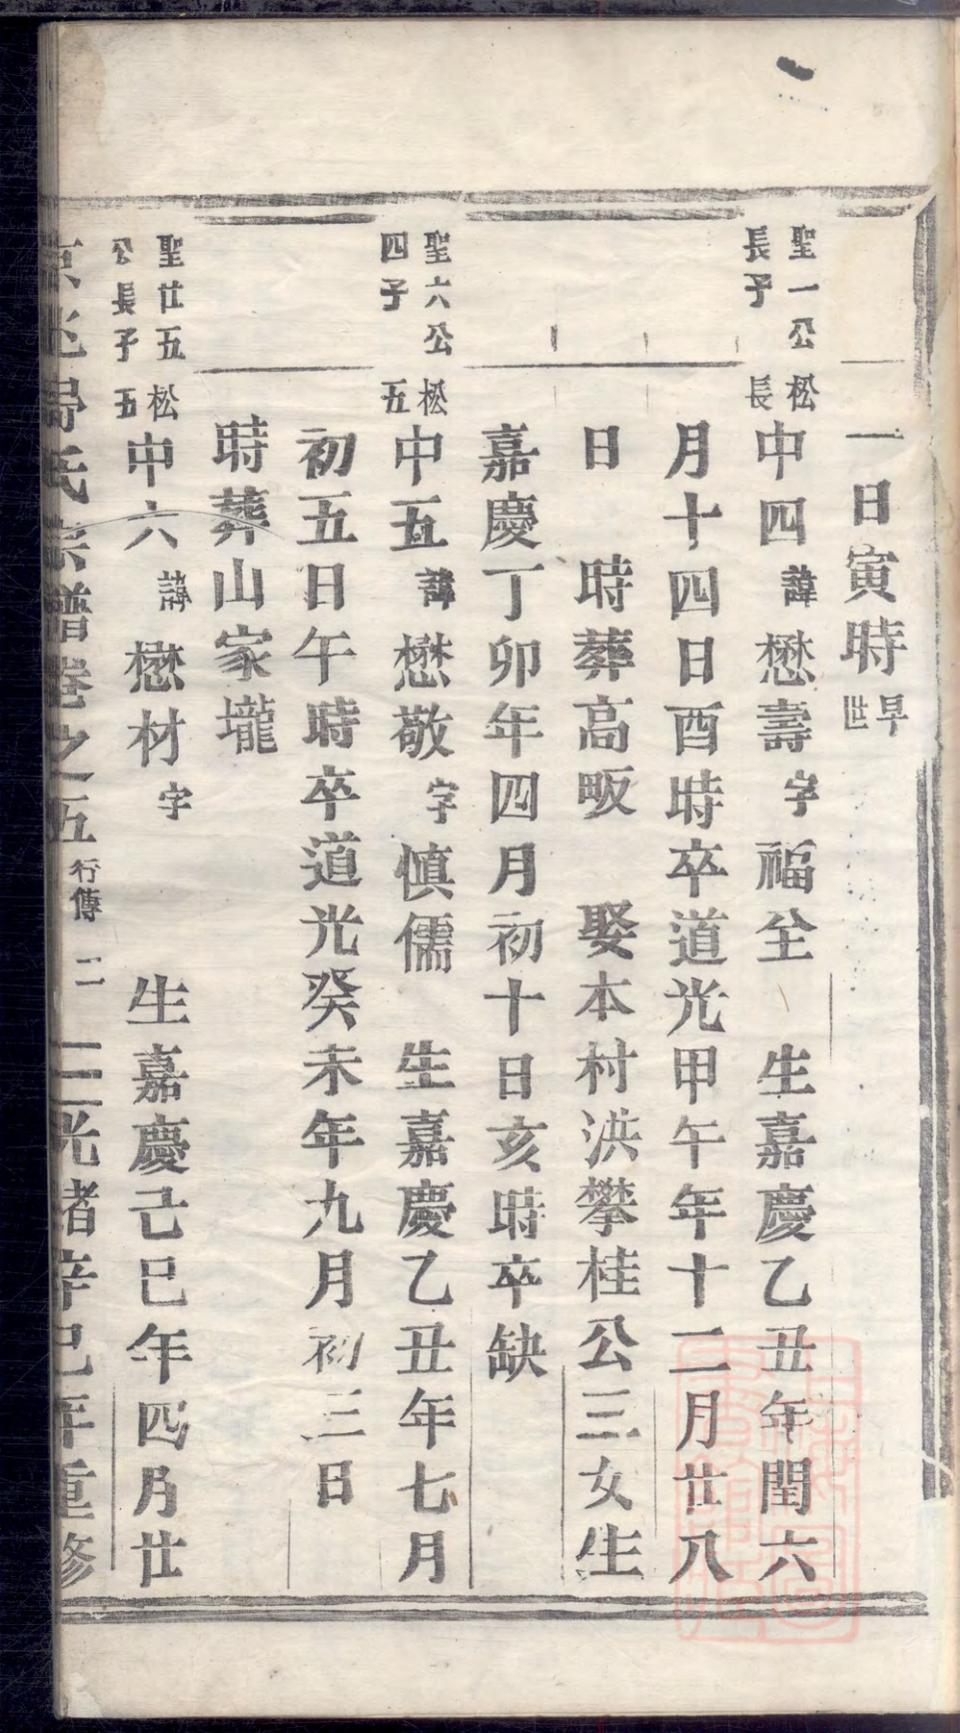 一日寅時早世
聖一公長子
松長中四諱懋壽字福全 生嘉慶乙丑年閏六
月十四日酉時卒道光甲午年十二月廿八
日 時葬高畈 娶本村洪攀桂公三女生
嘉慶丁卯年四月初十日亥時卒缺
聖六公四子
松五中五諱懋敬字慎儒 生嘉慶乙丑年七月
初五日午時卒道光癸未年九月初三日
時葬山家壠
聖廿五公長子
松五中六諱懋材字 生嘉慶己巳年四月廿
京兆 氏宗譜卷之五 行傳 二 光緒辛巳年重修